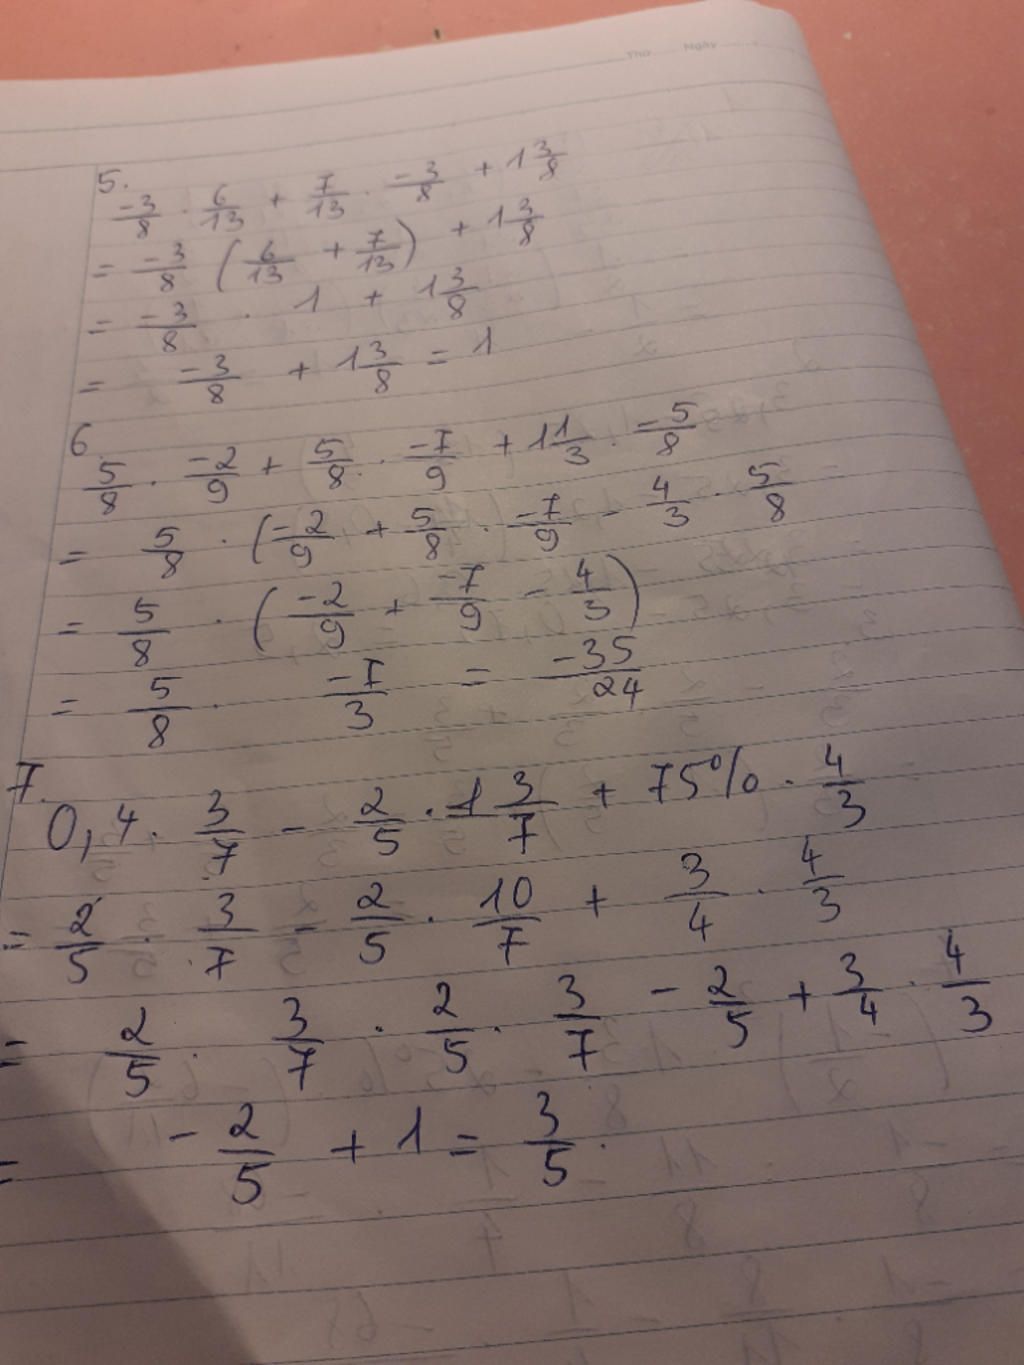 Thứ Ngày
5.
-3/8 · 6/13 + 7/13 · -3/8 + 1 3/8
= -3/8 (6/13 + 7/13) + 1 3/8
= -3/8 · 1 + 1 3/8
= -3/8 + 1 3/8 = 1
6.
5/8 · -2/9 + 5/8 · -7/9 + 1 1/3 · -5/8
= 5/8 · (-2/9 + 5/8 · -7/9 - 4/3 · 5/8
= 5/8 · (-2/9 + -7/9 - 4/3)
= 5/8 · -7/3 = -35/24
7.
0,4 · 3/7 - 2/5 · 1 3/7 + 75% · 4/3
= 2/5 · 3/7 - 2/5 · 10/7 + 3/4 · 4/3
= 2/5 · 3/7 · 2/5 · 3/7 - 2/5 + 3/4 · 4/3
= -2/5 + 1 = 3/5.